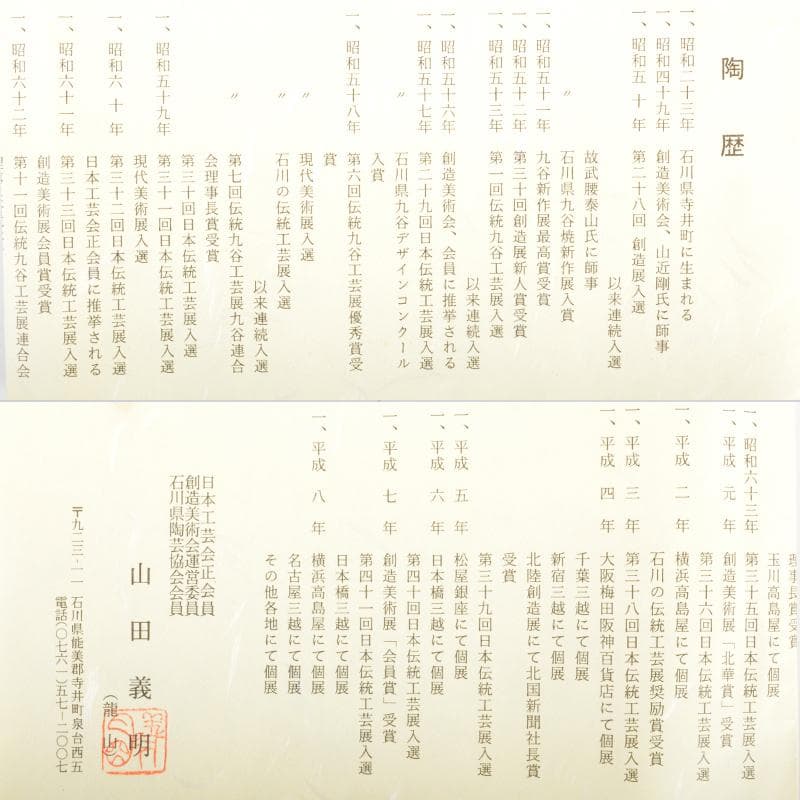 陶歴
一、昭和二十三年 石川県寺井町に生まれる
一、昭和四十九年 創造美術会、山近剛氏に師事
一、昭和五十年 第二十八回 創造展入選
以来連続入選
故武腰泰山氏に師事
〃 石川県九谷焼新作展入賞
一、昭和五十一年 九谷新作展最高賞受賞
一、昭和五十二年 第三十回創造展新人賞受賞
一、昭和五十三年 第一回伝統九谷工芸展入選
以来連続入選
一、昭和五十六年 創造美術会、会員に推挙される
一、昭和五十七年 第二十九回日本伝統工芸展入選
〃 石川県九谷デザインコンクール
入賞
一、昭和五十八年 第六回伝統九谷工芸展優秀賞受
賞
〃 現代美術展入選
〃 石川の伝統工芸展入選
以来連続入選
〃 第七回伝統九谷工芸展九谷連合
会理事長賞受賞
第三十回日本伝統工芸展入選
一、昭和五十九年 第三十一回日本伝統工芸展入選
現代美術展入選
一、昭和六十年 第三十二回日本伝統工芸展入選
日本工芸会正会員に推挙される
一、昭和六十一年 第三十三回日本伝統工芸展入選
創造美術展会員賞受賞
一、昭和六十二年 第十一回伝統九谷工芸展連合会
理事長賞受賞
玉川高島屋にて個展
一、昭和六十三年 第三十五回日本伝統工芸展入選
一、平成元年 創造美術展「北華賞」受賞
第三十六回日本伝統工芸展入選
一、平成二年 横浜高島屋にて個展
石川の伝統工芸展奨励賞受賞
一、平成三年 第三十八回日本伝統工芸展入選
一、平成四年 大阪梅田阪神百貨店にて個展
千葉三越にて個展
新宿三越にて個展
北陸創造展にて北国新聞社長賞
受賞
第三十九回日本伝統工芸展入選
一、平成五年 松屋銀座にて個展
一、平成六年 日本橋三越にて個展
第四十回日本伝統工芸展入選
一、平成七年 創造美術展「会員賞」受賞
第四十一回日本伝統工芸展入選
日本橋三越にて個展
一、平成八年 横浜高島屋にて個展
名古屋三越にて個展
その他各地にて個展
日本工芸会正会員
創造美術会運営委員
石川県陶芸協会会員
山田義明
（龍山）
〒九二三-一一 石川県能美郡寺井町泉台西五
電話（〇七六一）五七-二〇〇七